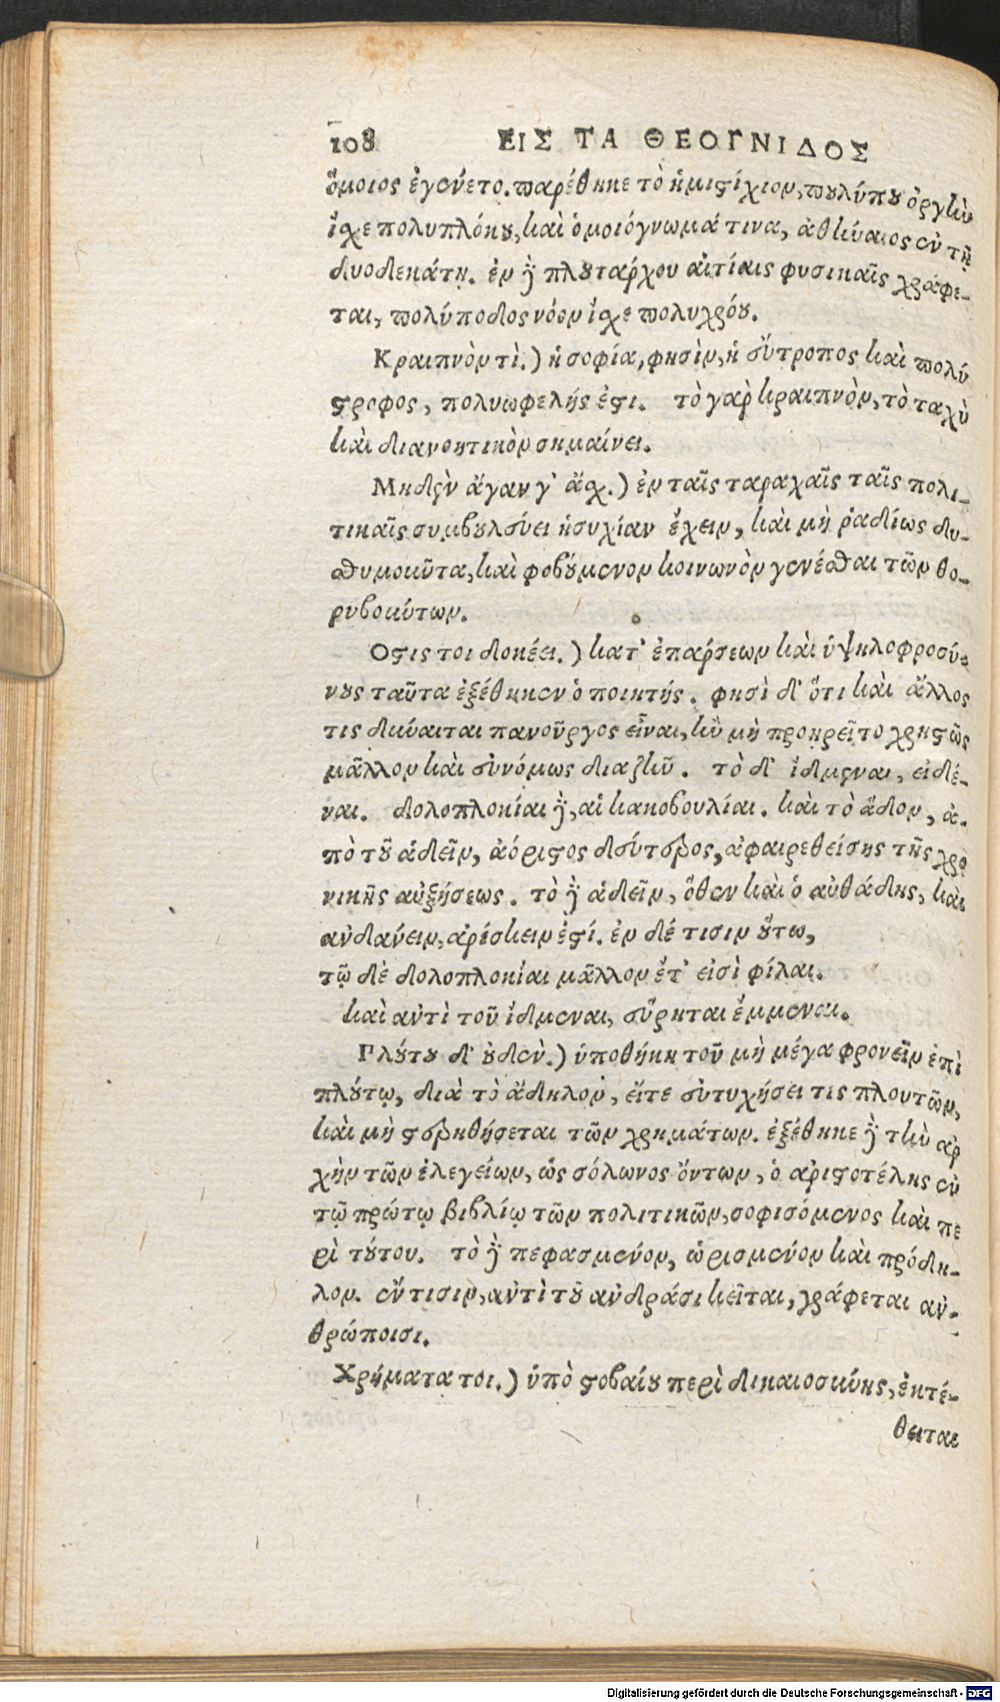 108 ΕΙΣ ΤΑ ΘΕΟΓΝΙΔΟΣ
ὅμοιος ἐγένετο. παρέθηκε τὸ ἡμιστίχιον, πουλύπου ὀργὴν
ἴχε πολυπλόκου, καὶ ὁμοιόγνωμά τινα, ἀθήναιος ἐν τῇ
δυοδεκάτῃ. ἐν δὲ πλουτάρχου αἰτίαις φυσικαῖς γράφε-
ται, πολύποδος νόον ἴχε πολυχρόου.
Κραιπνὸν τὶ.) ἡ σοφία, φησὶν, ἡ εὔτροπος καὶ πολύ
στροφος, πολυωφελής ἐστι. τὸ γὰρ κραιπνὸν, τὸ ταχὺ
καὶ διανοητικὸν σημαίνει.
Μηδὲν ἄγαν γ' ἄσχ.) ἐν ταῖς ταραχαῖς ταῖς πολι-
τικαῖς συμβουλεύει ἡσυχίαν ἔχειν, καὶ μὴ ῥαδίως δυ-
σθυμοῦντα, καὶ φοβούμενον κοινωνὸν γενέσθαι τῶν θο-
ρυβούντων.
Οστις τοι δοκέει.) κατ' ἐπάρσεων καὶ ὑψηλοφροσύ-
νους ταῦτα ἐξέθηκεν ὁ ποιητής. φησὶ δ' ὅτι καὶ ἄλλος
τις δύναται πανοῦργος εἶναι, ἢν μὴ προηρεῖτο χρηστῶς
μᾶλλον καὶ εὐνόμως διαζῆν. τὸ δ' ἴδμεναι, εἰδέ-
ναι. δολοπλοκίαι δὲ, αἱ κακοβουλίαι. καὶ τὸ ἅδον, ἀ-
πὸ τοῦ ἁδεῖν, ἀόριστος δεύτερος, ἀφαιρεθείσης τῆς χρο
νικῆς αὐξήσεως. τὸ δὲ ἁδεῖν, ὅθεν καὶ ὁ αὐθάδης, καὶ
ἁνδάνειν, ἀρέσκειν ἐστί. ἐν δέ τισιν οὕτω,
τῷ δὲ δολοπλοκίαι μᾶλλον ἔτ' εἰσὶ φίλαι.
καὶ ἀντὶ τοῦ ἴδμεναι, εὕρηται ἔμμεναι.
Πλούτου δ' οὐδὲν.) ὑποθήκη τοῦ μὴ μέγα φρονεῖν ἐπὶ
πλούτῳ, διὰ τὸ ἄδηλον, εἴτε εὐτυχήσει τις πλουτῶν,
καὶ μὴ στερηθήσεται τῶν χρημάτων. ἐξέθηκε δὲ τὴν ἀρ
χὴν τῶν ἐλεγείων, ὡς σόλωνος ὄντων, ὁ ἀριστοτέλης ἐν
τῷ πρώτῳ βιβλίῳ τῶν πολιτικῶν, σοφισόμενος καὶ πε
ρὶ τούτου. τὸ δὲ πεφασμένον, ὡρισμένον καὶ πρόδη-
λον. ἔν τισιν, ἀντὶ τοῦ ἀνδράσι κεῖται, γράφεται ἀν-
θρώποισι.
Χρήματα τοι.) ὑπὸ στοβαίου περὶ δικαιοσύνης, ἐκτέ-
θειται
Digitalisierung gefördert durch die Deutsche Forschungsgemeinschaft - DFG